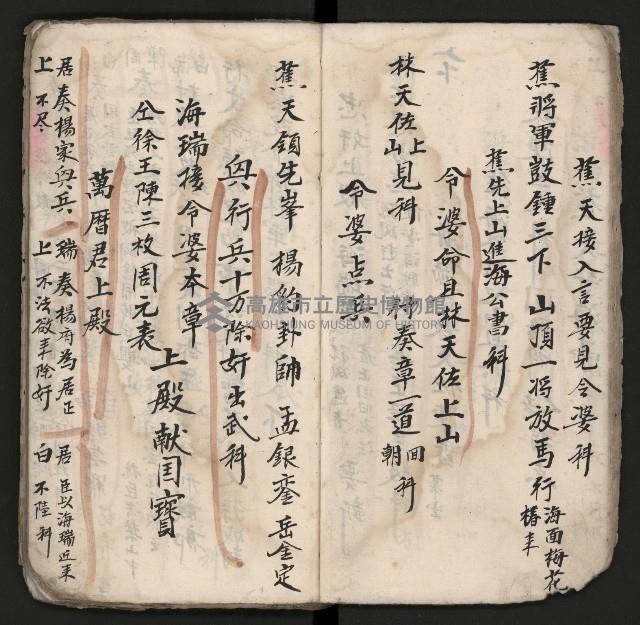 蕉天接入言要見令婆科
蕉將軍鼓鍾三下山頂一馮放馬行海面梅花樁來
蕉先上山進海公書科
令婆命且林天佐上山
林天佐上山見科 付奏章一道回朝科
令婆点兵
蕉天領先峯 楊豹卦帥 孟銀銮岳金定
與行兵十万除奸出武科
海瑞接令婆本章
仝徐王陳三枚周元表上殿献国寶
萬曆君上殿
居奏楊家與兵 瑞奏楊府為居正 居 臣以海瑞近來
上 不尽 上 不法欲來除奸 白 不陸科
高雄市立歷史博物館
KAOHSIUNG MUSEUM OF HISTORY